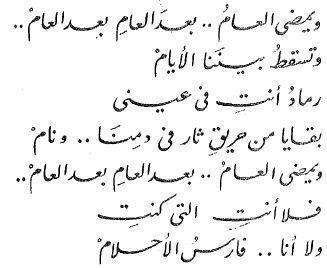 ويمضى العامُ .. بعدَ العامِ بعد العامْ ..
وتسقطُ بيننا الأيامْ
رمادُ أنتِ فى عينى
بقايا من حريقٍ ثار فى دمِنَا .. ونامْ
ويمضى العامُ .. بعد العامِ بعد العامْ ..
فلا أنتِ التى كنتِ
ولا أنا .. فارسُ الأحلامْ